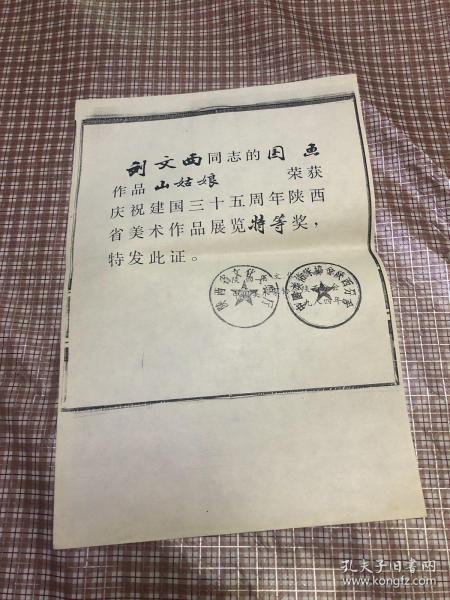 刘文西同志的国画
作品山姑娘 荣获
庆祝建国三十五周年陕西
省美术作品展览特等奖，
特发此证。
孔夫子旧书网
www.kongfz.com